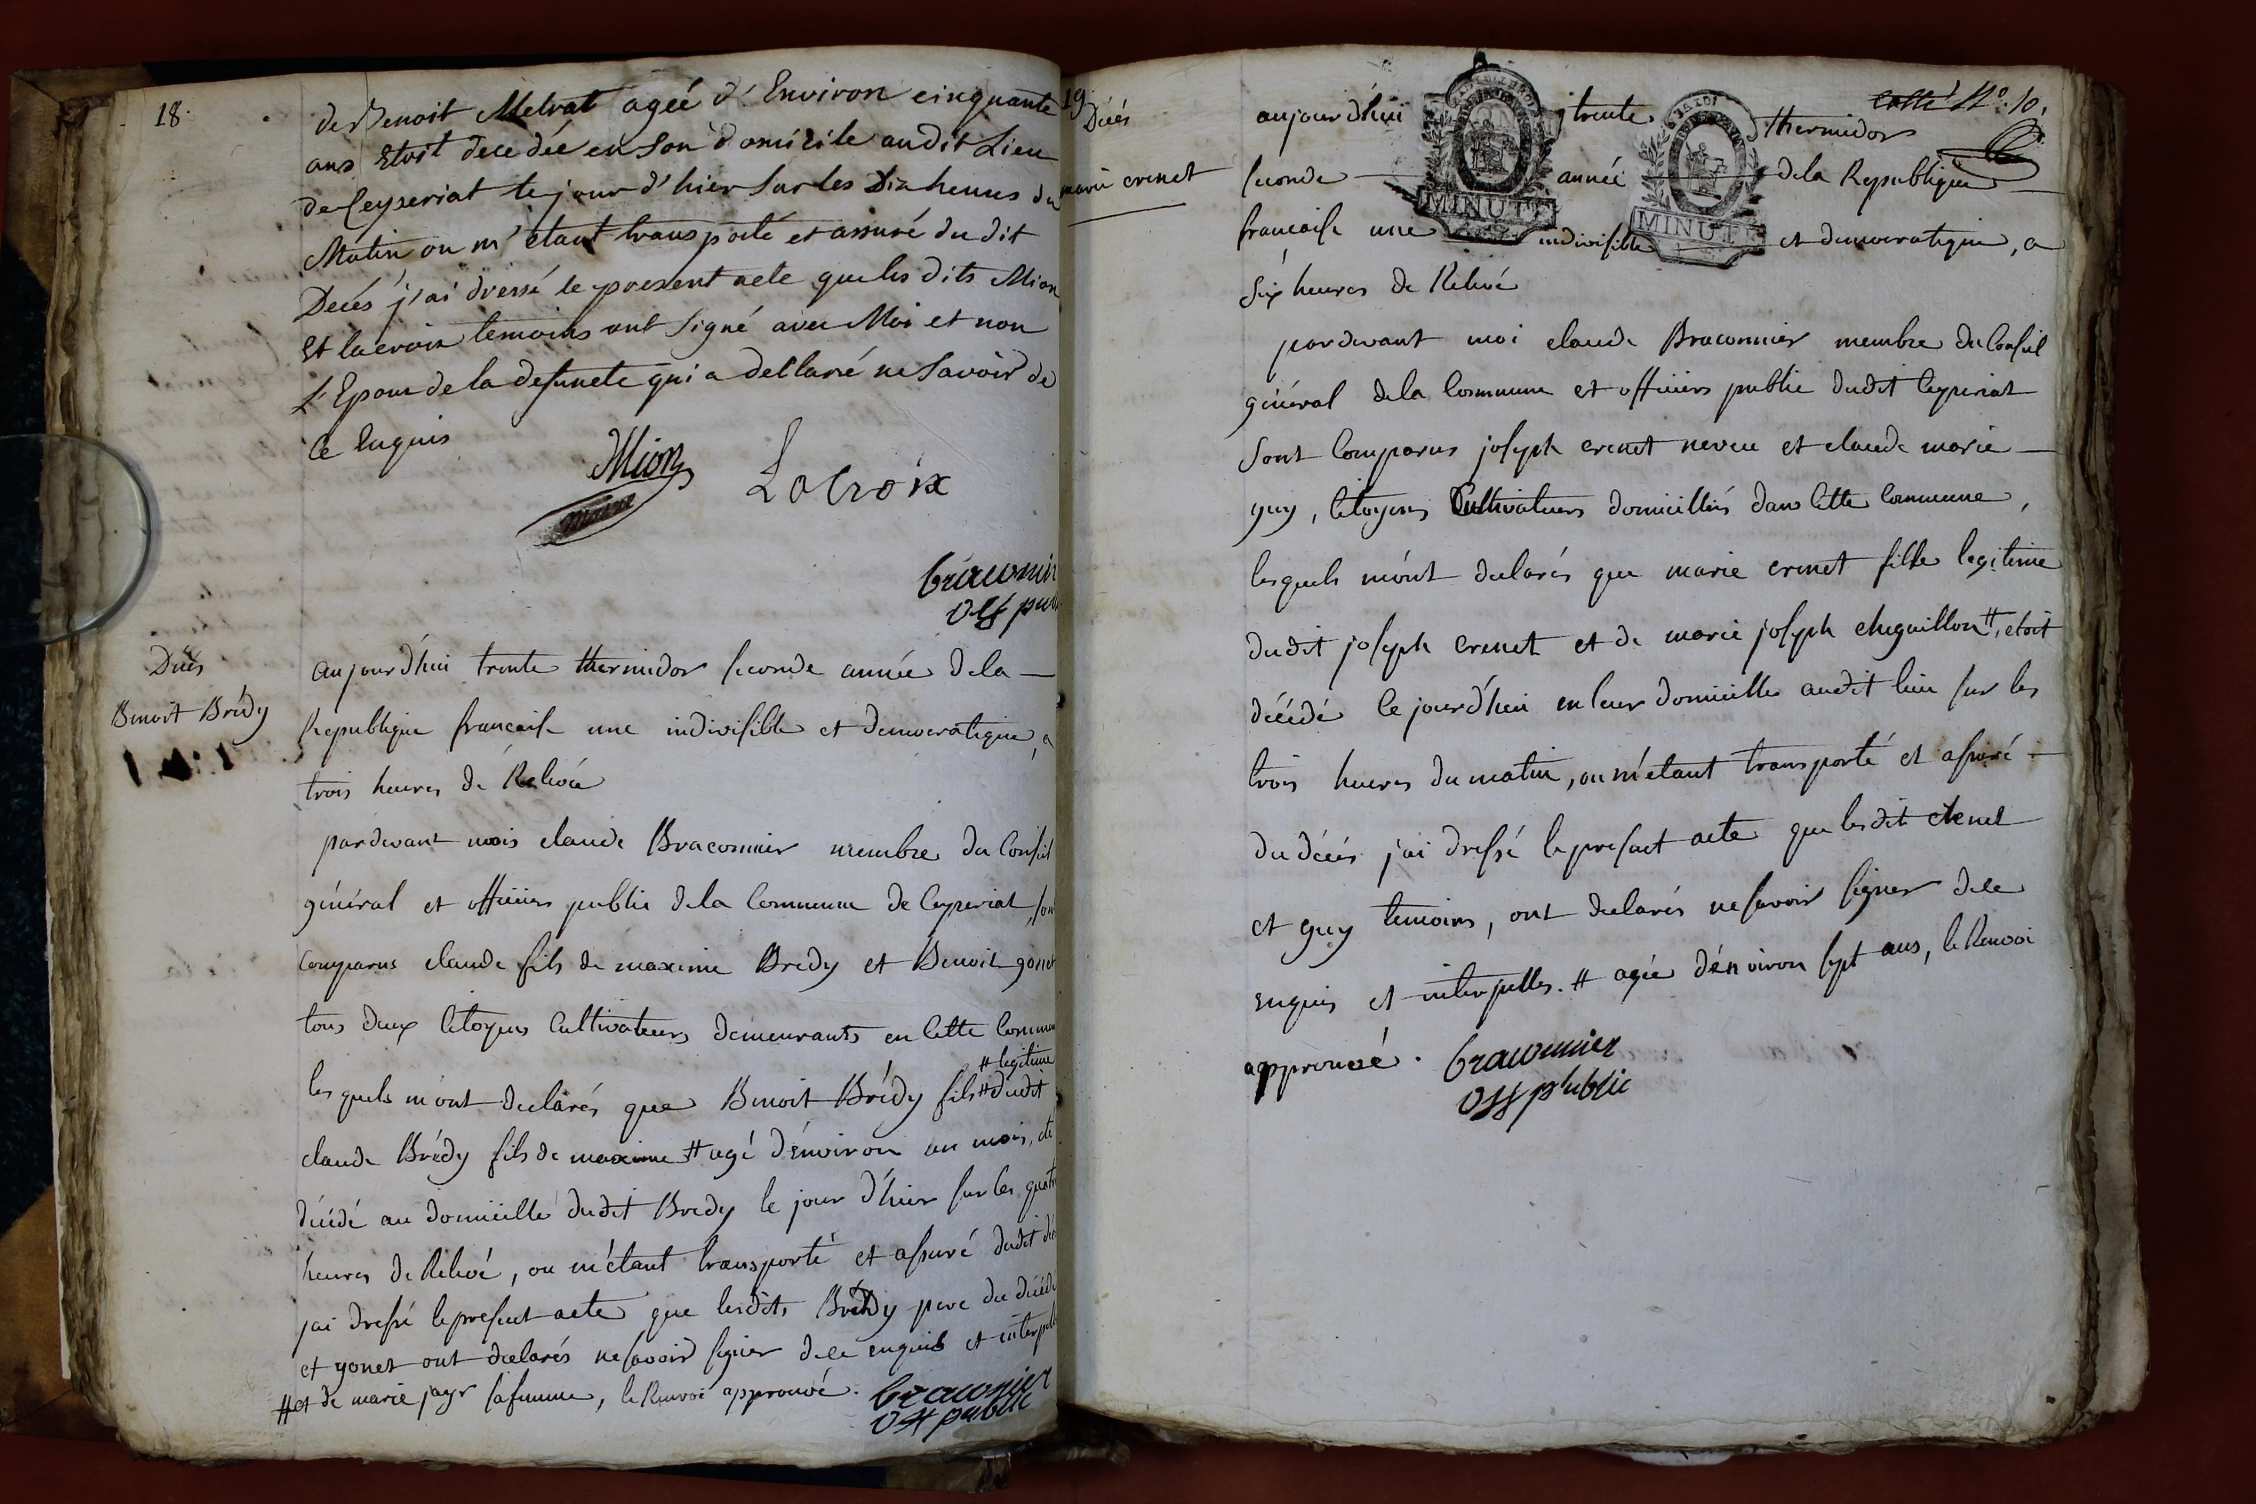 18.
de Benoit Melvat ageé d'Environ cinquante
ans Etoit decedée en son domicile audit Lieu
de Ceyseriat le jour d'hier sur les Dix heures du
Matin ou m'etant transporté et assuré du dit
Decés j'ai dressé le present acte que les dits Mion
Et lacroix temoins ont signé avec Moi et non
L'Epoux de la defuncte qui a declaré ne savoir de
ce Enquis
Mion
Lacroix
braconnier
off pub
Décés
Benoit Brédy
aujourd'hui trente thermidor seconde année de la
Republique francaise une indivisible et democratique, a
trois heures de Relevée
pardevant mois claude Braconnier membre du Conseil
général et officiers public de la Commune de Ceyseriat, son
comparus claude fils de maxime Bredy et Benoit gonet
tous deux Citoyens Cultivateurs demeurants en Cette Commun
# legitime
lesquels m'ont declarés que Benoit Brédy fils # dudit
claude Brédy fils de maxime # agé d'environ un mois, ete
décédé au domicille dudit Bredy le jour d'hier sur les quatre
heures de Relevé, ou m'étant transporté et assuré dudit déc
jai dressé le present acte que lesdits Brédy pere du décédé
et gonet ont declarés ne savoir signer de ce enquis et interpell
# et de marie jayr sa femme, le Renvoi approuvé.
braconnier
off public
19.
Décés
marie crenet
Cotté N°. 10.
aujourd'hui trente thermidor
seconde année de la Republique
francaise une indivisible et democratique, a
six heures de Relevé
MINUTE
MINUTE
pardevant moi claude Braconnier membre du Conseil
général de la Commune et officiers public dudit Ceyseriat
sont Comparus joseph crenet neveu et claude marie
guy, Citoyens Cultivateurs domicilliés dans Cette Commune,
lesquels m'ont declarés que marie crenet fille legitime
dudit joseph crenet et de marie joseph cheguillon #, etoit
décédé Ce jourd'hui en leur domicille audit lieu sur les
trois heures du matin, ou m'etant transporté et assuré
du décés jai dressé le present acte que lesdit crenet
et guy temoins, ont declarés ne savoir signer de ce
enquis et interpelles. # agée d'environ sept ans, le Renvoi
approuvé.
braconnier
off public